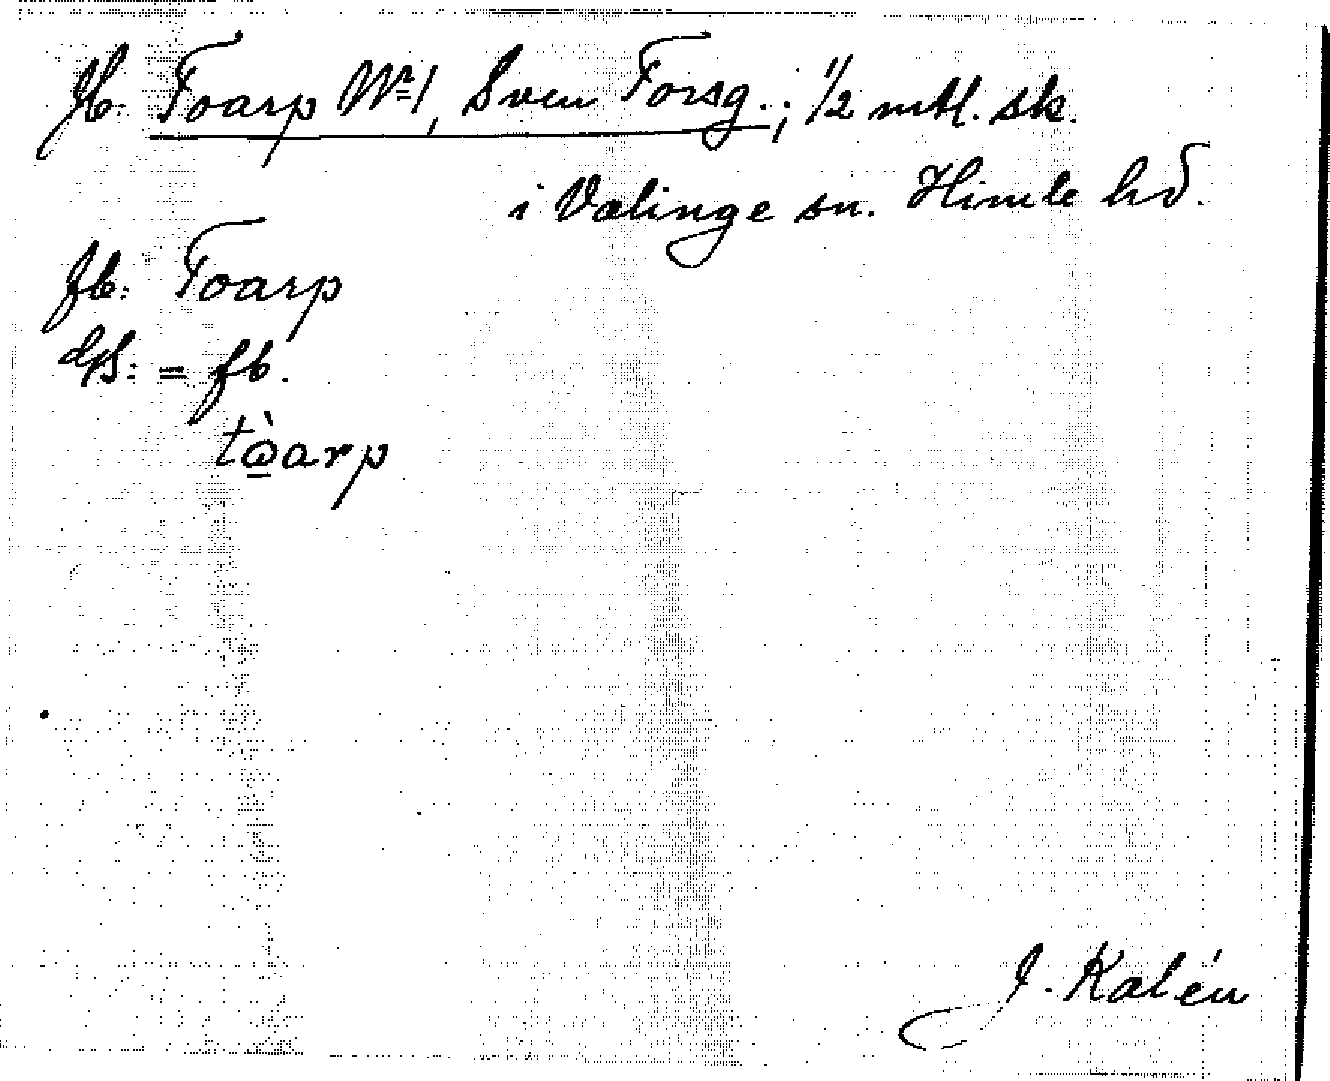 Jb. Toarp Nr 1, Sven Torsg.; 1/2 mtl. sk.
i Valinge sn. Himle hd.
fb: Toarp
GS: = fb.
tòarp
J. Kalén